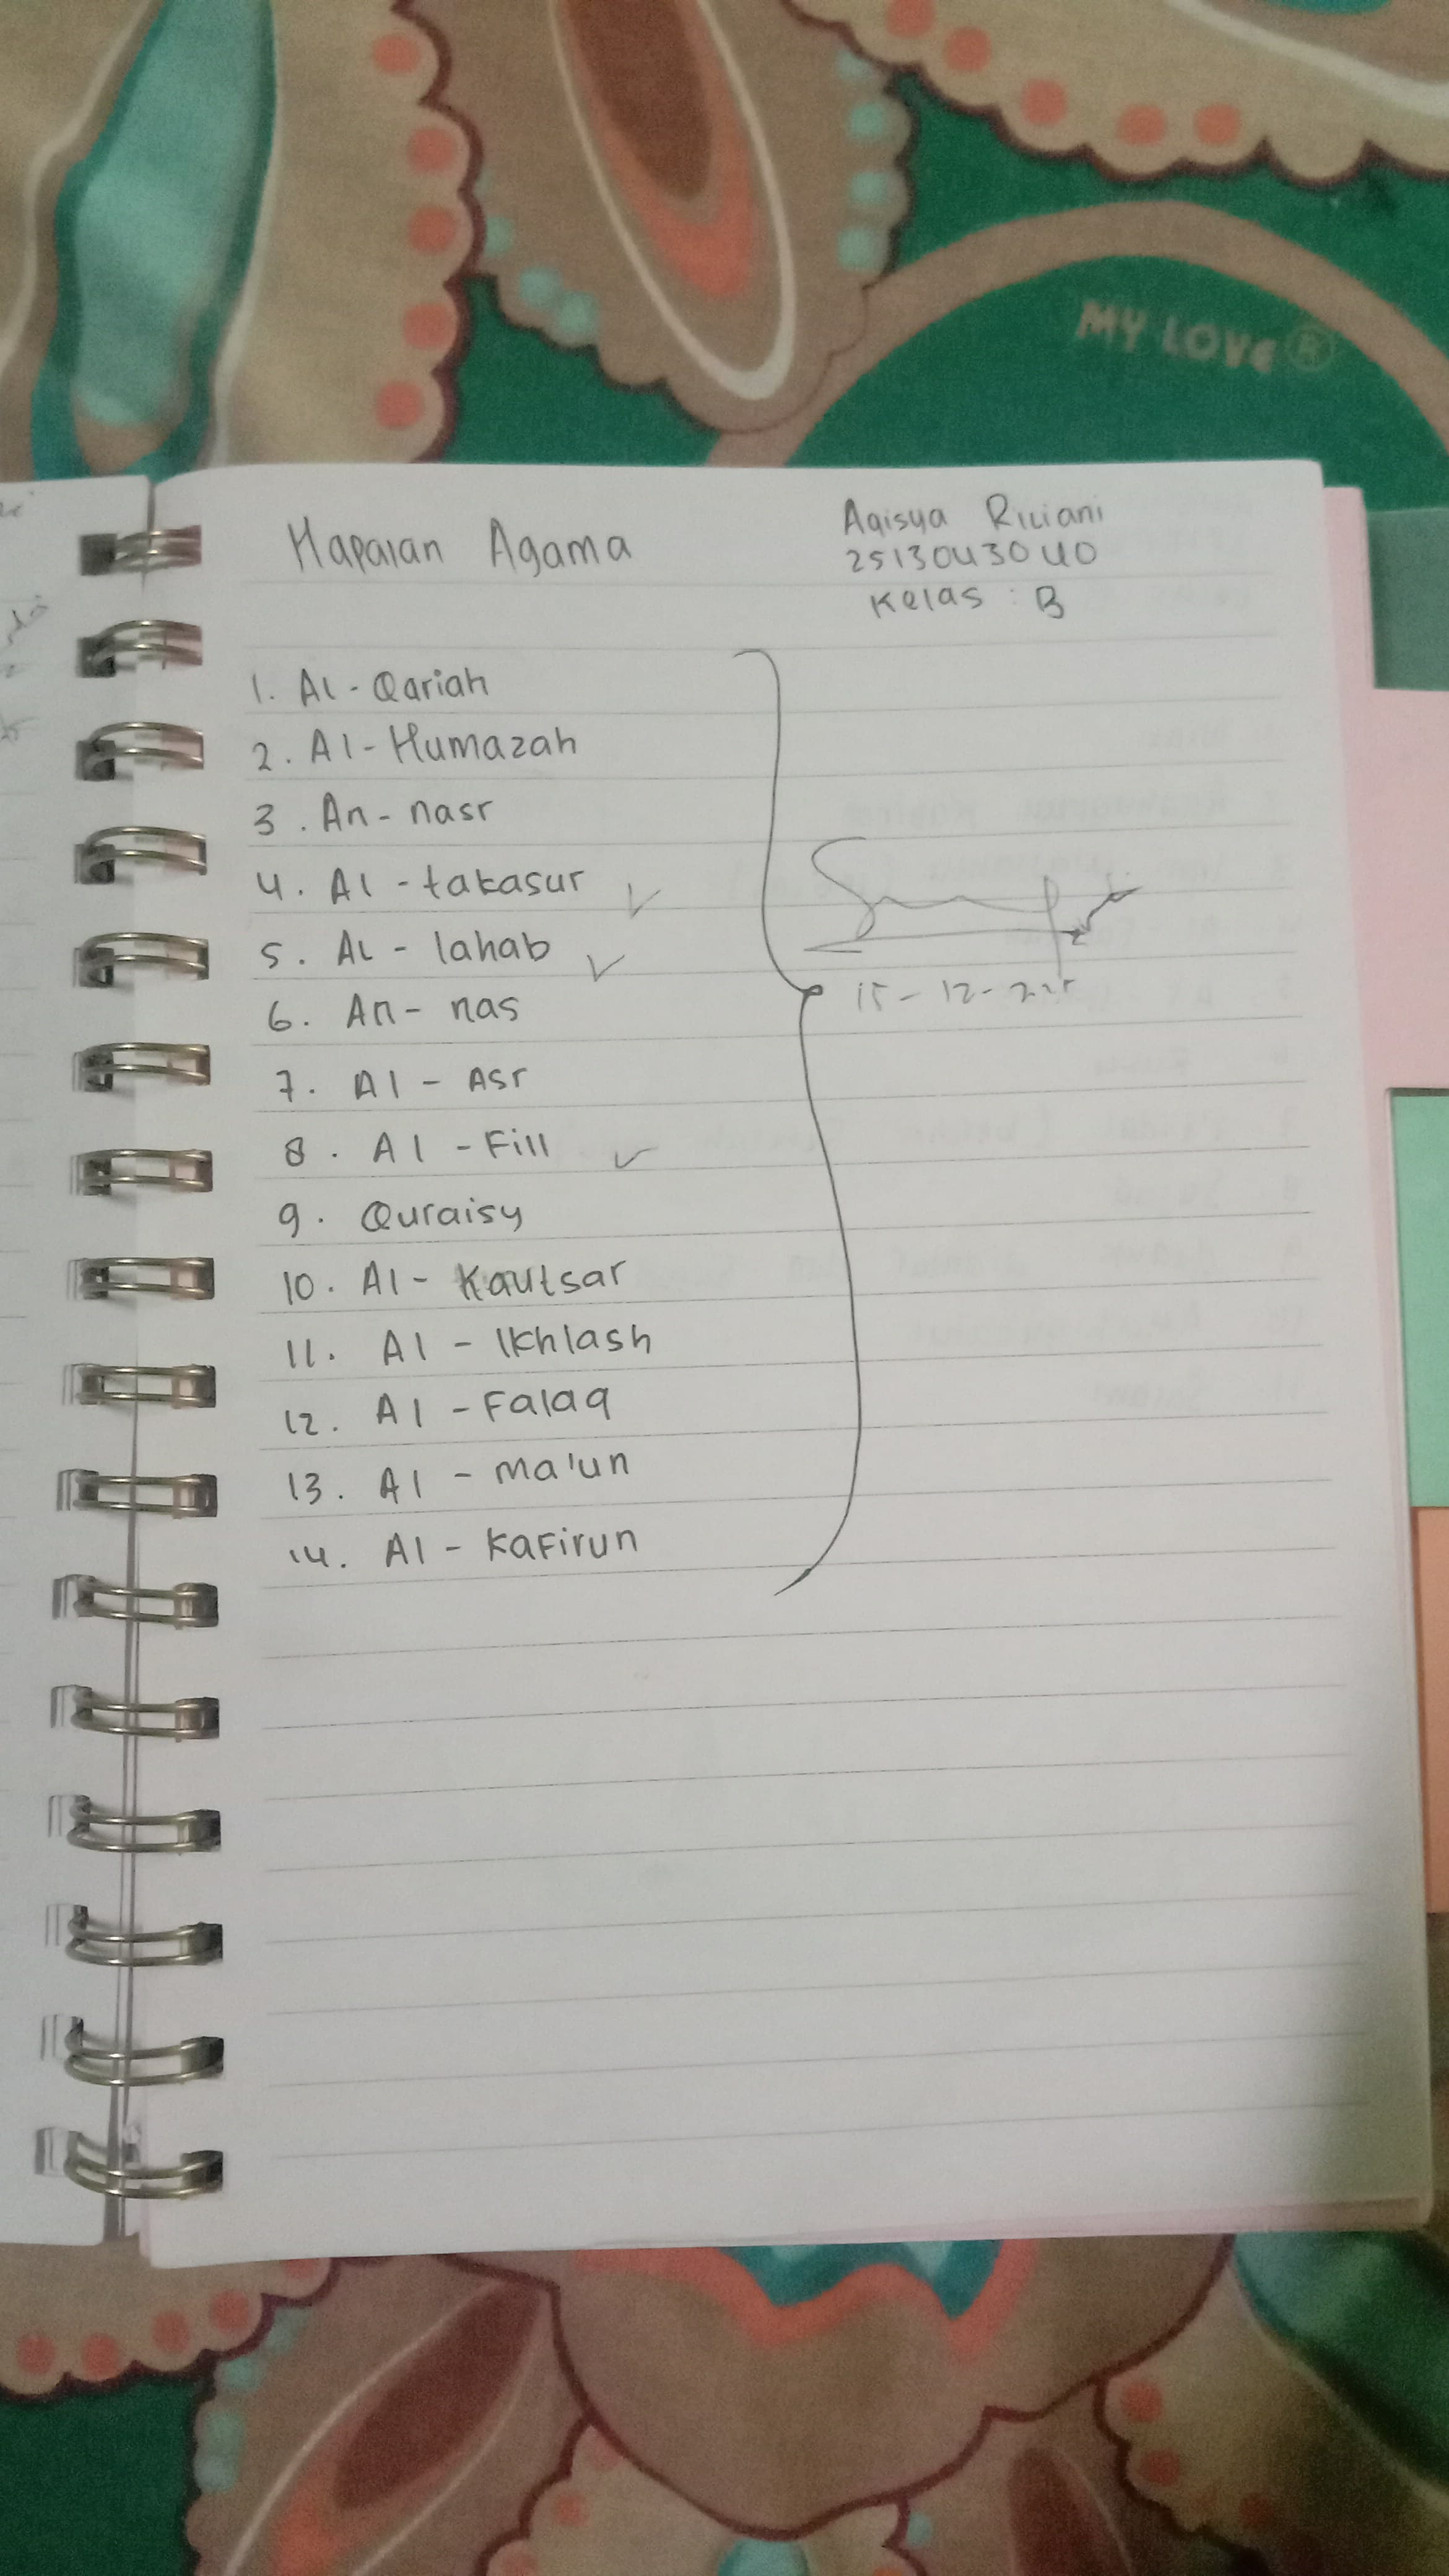 MY LOVE®
Hapalan Agama
Aqisya Riliani
2513043040
Kelas : B
1. Al - Qariah
2. Al - Humazah
3. An - nasr
4. Al - takasur ✓
5. Al - lahab ✓
6. An - nas
7. Al - Asr
8. Al - Fill ✓
9. Quraisy
10. Al - Kautsar
11. Al - Ikhlash
12. Al - Falaq
13. Al - ma'un
14. Al - Kafirun
15 - 12 -